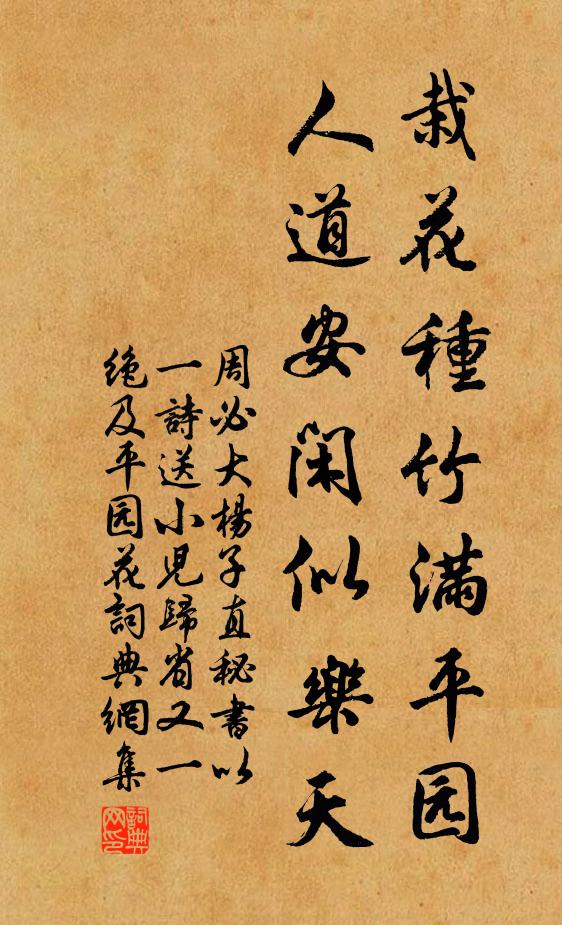 栽花種竹滿平园
人道安闲似樂天
周必大楊子直秘書以
一詩送小兒歸省又一
绝及平园花詞典網集
詞典网印